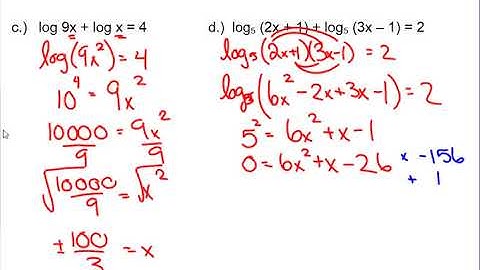 c.) log 9x + log x = 4
log(9x²) = 4
10⁴ = 9x²
10000/9 = 9x²/9
√(10000/9) = √x²
± 100/3 = x
d.) log₅ (2x + 1) + log₅ (3x – 1) = 2
log₅(2x+1)(3x-1) = 2
log₅(6x² - 2x + 3x - 1) = 2
5² = 6x² + x - 1
0 = 6x² + x - 26
x -156
+ 1